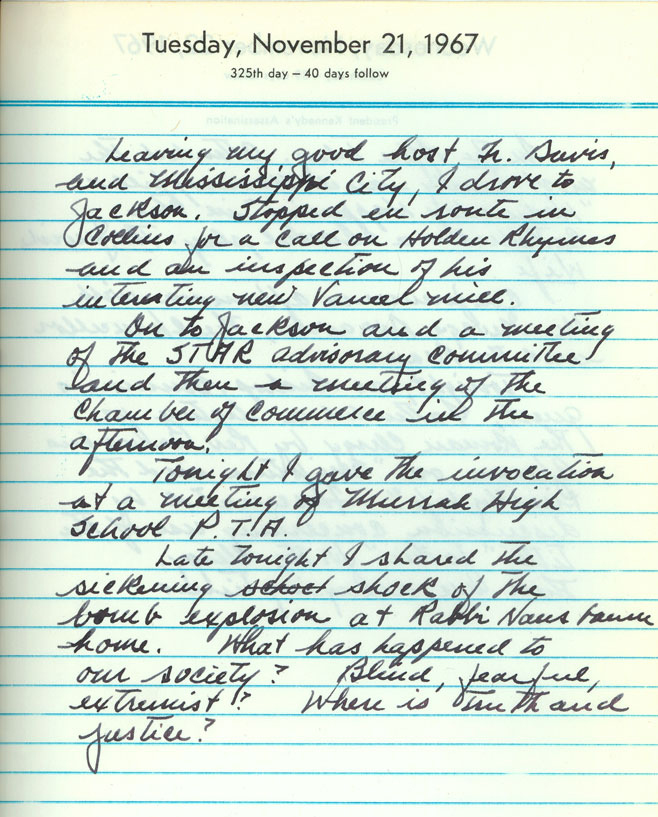 Tuesday, November 21, 1967
325th day – 40 days follow
President Kennedy's Assassination
Leaving my good host, Fr. Davis,
and Mississippi City, I drove to
Jackson. Stopped en route in
Collins for a call on Holden Rhymes
and an inspection of his
interesting new Vaneel mill.
On to Jackson and a meeting
of the STAR advisorary committee
and then a meeting of the
Chamber of Commerce in the
afternoon.
Tonight I gave the invocation
at a meeting of Murrah High
School P.T.A.
Late tonight I shared the
sickening school shock of the
bomb explosion at Rabbi Nausbaum
home. What has happened to
our society? Blind, fearful,
extremist? Where is Truth and
justice?